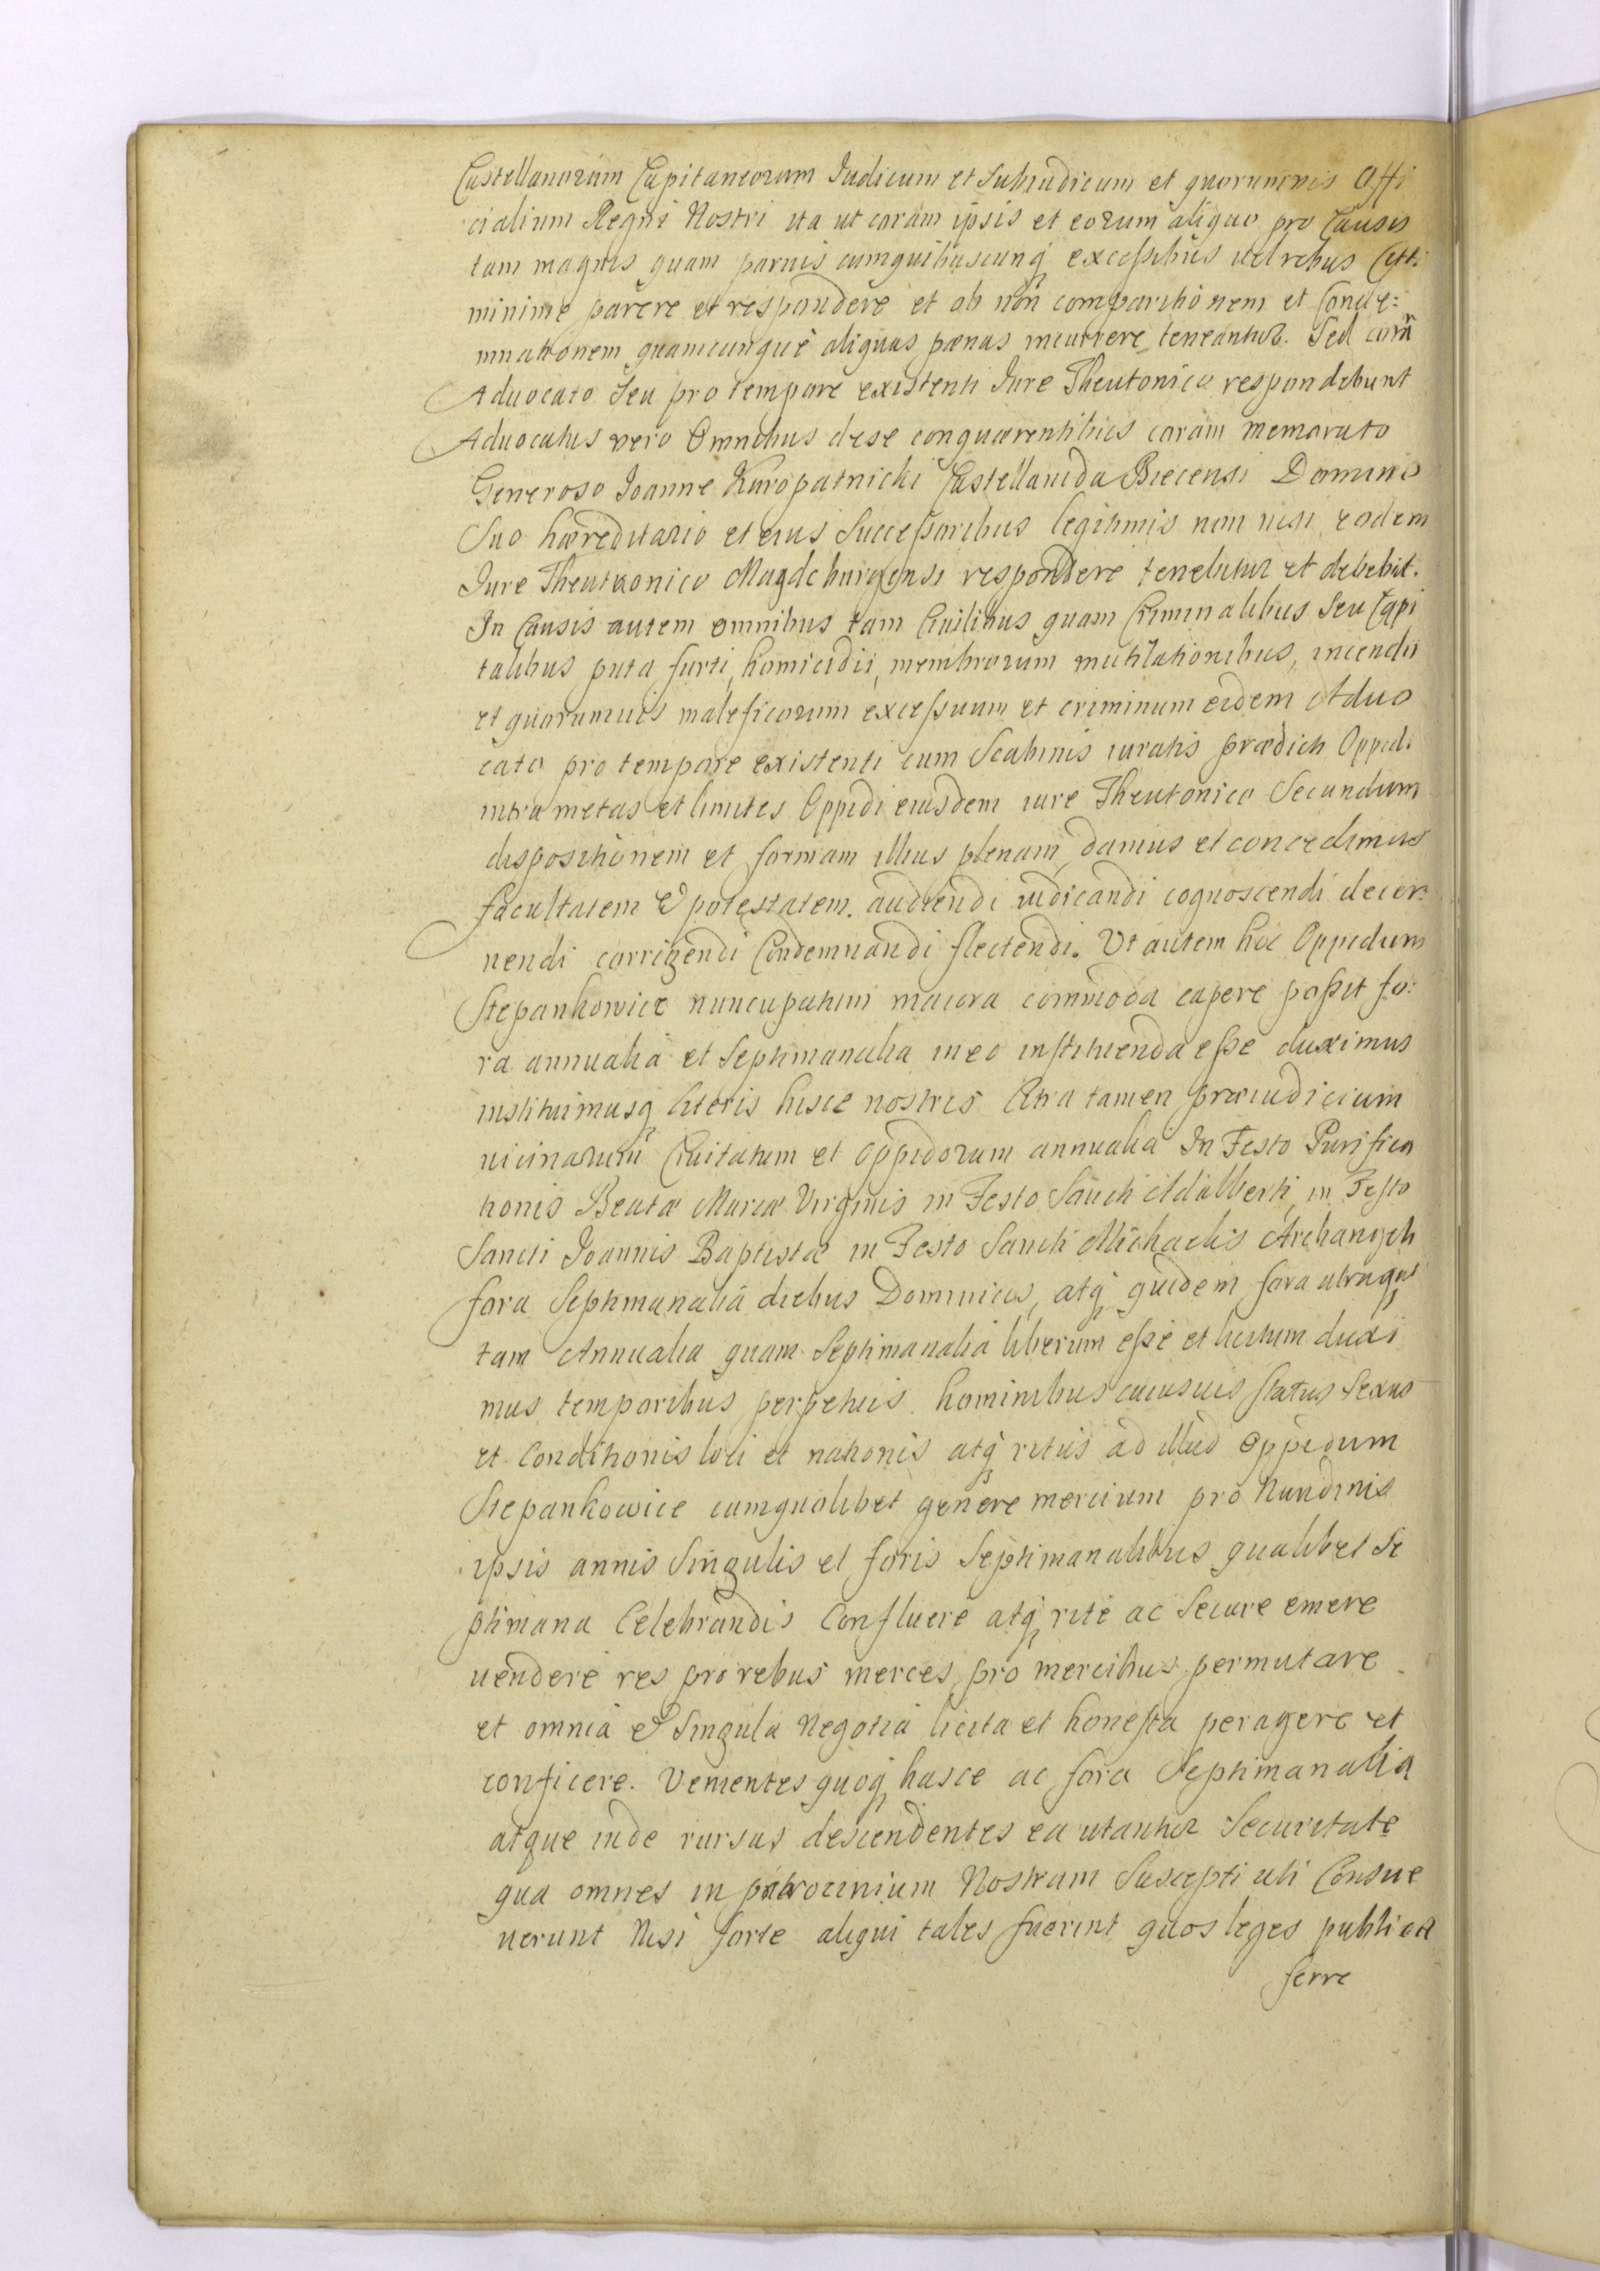 Castellanorum Capitaneorum Iudicum et Subiudicum et quorumvis Offi
cialium Regni Nostri ita ut coram ipsis et eorum aliquo pro Causis
tam magnis quam paruis cumquibuscunq excessibus uel rebus Citti
minime parere et respondere et ob non comparitionem et Conde=
mnationem quamcunque aliquas pænas incurrere teneantur. Sed corã
Aduocato Seu pro tempore existenti Iure Theutonico respondebunt
Aduocatus vero Omnibus dese conquærentibus coram memorato
Generoso Ioanne Kuropatnicki Castellanida Biecensi Domino
Suo hæreditario et eius Successoribus legitimis non nisi eodem
Iure Theutonico Magdeburgensi respondere tenebitur et debebit.
In Causis autem omnibus tam Ciuilibus quam Criminalibus Seu Capi
talibus puta furti, homicidii, membrorum mutilationibus, incendii
et quorumuis maleficorum excessuum et criminum eidem Aduo
cato pro tempore existenti cum Scabinis iuratis prædicti Oppidi
intra metas et limites Oppidi eiusdem iure Theutonico Secundum
dispositionem et formam illius plenam, damus et concedimus
facultatem & potestatem. audiendi iudicandi cognoscendi decer=
nendi corrigendi Condemnandi plectendi. Ut autem hoc Oppidum
Stepankowice nuncupatum maiora commoda capere possit fo=
ra annualia et Septimanalia in eo instituenda esse duximus
instituimusq literis hisce nostris Citra tamen præiudicium
uicinarum Ciuitatum et Oppidorum annualia In Festo Purifica
tionis Beatæ Mariæ Virginis in Festo Sancti Adalberti, in Festo
Sancti Ioannis Baptistæ in Festo Sancti Michaelis Archangeli
fora Septimanalia diebus Dominicis, atq quidem fora utraque
tam Annualia quam Septimanalia liberum esse et licitum duxi
mus temporibus perpetuis hominibus cuiusuis status Sexus
et Conditionis loci et nationis atq ritus ad illud Oppidum
Stepankowice cumqualibet genere mercium pro Nundinis
ipsis annis Singulis et foris Septimanalibus qualibet Se
ptimana Celebrandis Confluere atq rite ac Secure emere
uendere res pro rebus merces pro mercibus permutare
et omnia & Singula Negotia licita et honesta peragere et
conficere. Venientes quoq hasce ac fora Septimanalia
atque inde rursus descendentes ea utantur Securitate
qua omnes in patrocinium Nostrum Suscepti uti Consue
uerunt Nisi forte aliqui tales fuerint quos leges publica
ferre